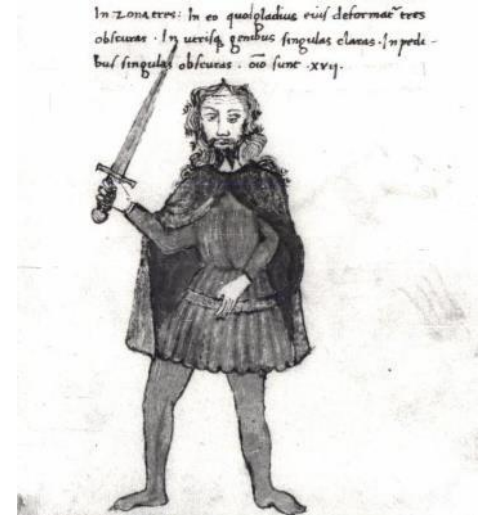 In zona tres: In eo quo gladius eius deformat͂ tres
obscuras. In utrisq; genibus singulas claras. In pedi-
bus singulas obscuras. oīo sunt. xvij.